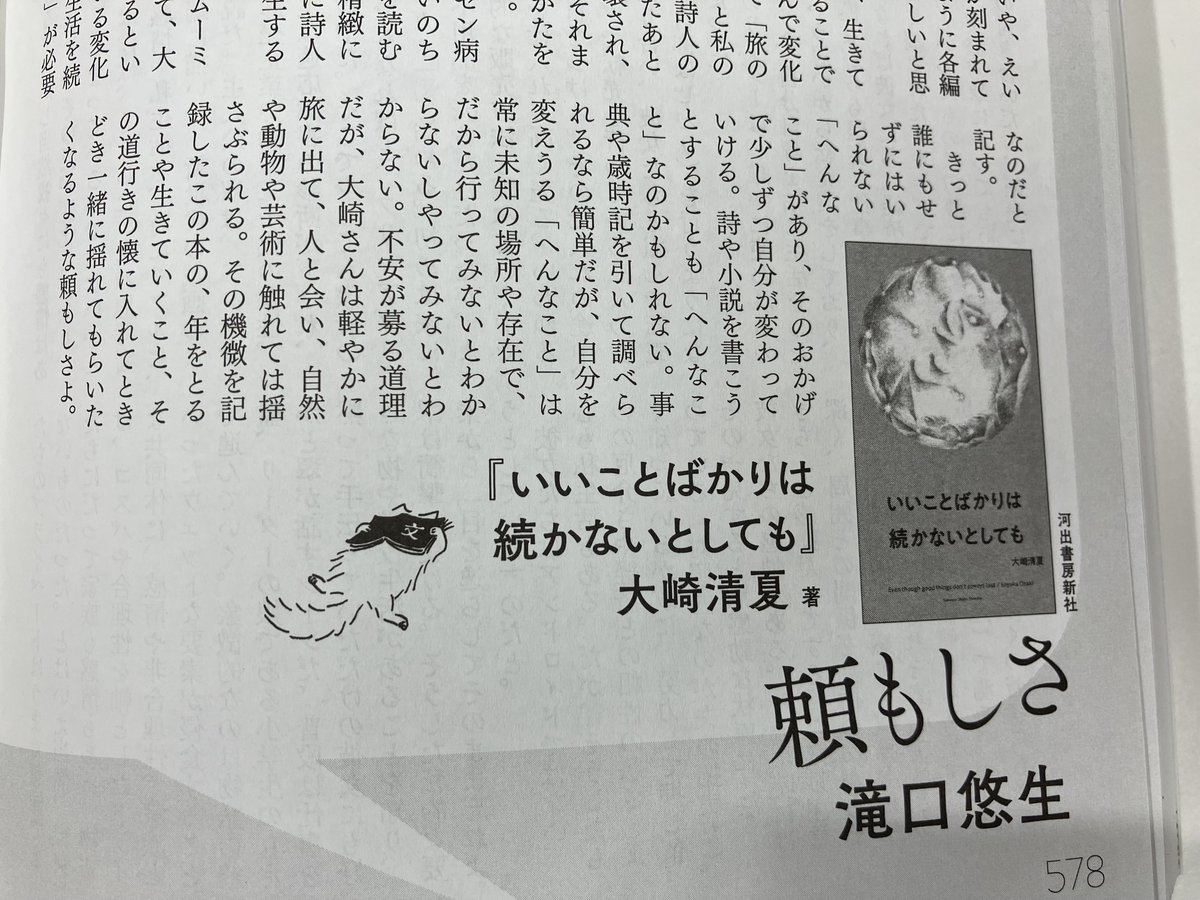 いや、えい
が刻まれて
ように各編
しいと思
、生きて
ることで
んで変化
「旅の
と私の
詩人の
たあと
壊され、
それま
がたを
。
セン病
いのち
を読む
精緻に
に詩人
生する
ムーミ
て、大
るとい
る変化
生活を続
」が必要
なのだと
記す。
きっと
誰にもせ
ずにはい
られない
「へんな
こと」があり、そのおかげ
で少しずつ自分が変わって
いける。詩や小説を書こう
とすることも「へんなこ
と」なのかもしれない。事
典や歳時記を引いて調べら
れるなら簡単だが、自分を
変えうる「へんなこと」は
常に未知の場所や存在で、
だから行ってみないとわか
らないしやってみないとわ
からない。不安が募る道理
だが、大崎さんは軽やかに
旅に出て、人と会い、自然
や動物や芸術に触れては揺
さぶられる。その機微を記
録したこの本の、年をとる
ことや生きていくこと、そ
の道行きの懐に入れてとき
どき一緒に揺れてもらいた
くなるような頼もしさよ。
いいことばかりは
続かないとしても
大崎清夏
Even though good things don't always last / Sayaka Osaki
河出書房新社
『いいことばかりは
続かないとしても』
大崎清夏 著
文
頼もしさ
滝口悠生
578